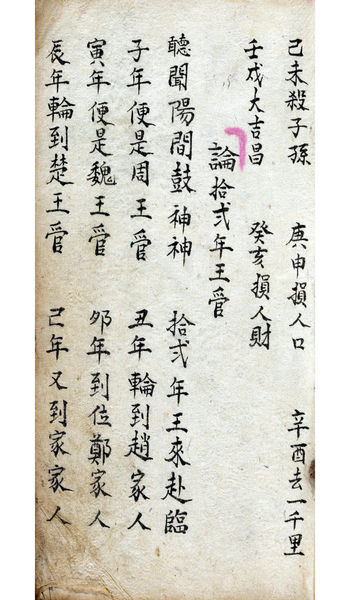 己未殺子孫 庚申損人口 辛酉去一千里
壬戌大吉昌 癸亥損人財
論拾弍年王管
聽聞陽間鼓神神 拾弍年王來赴臨
子年便是周王管 丑年輪到趙家人
寅年便是魏王管 夘年到位鄭家人
辰年輪到楚王管 己年又到家家人